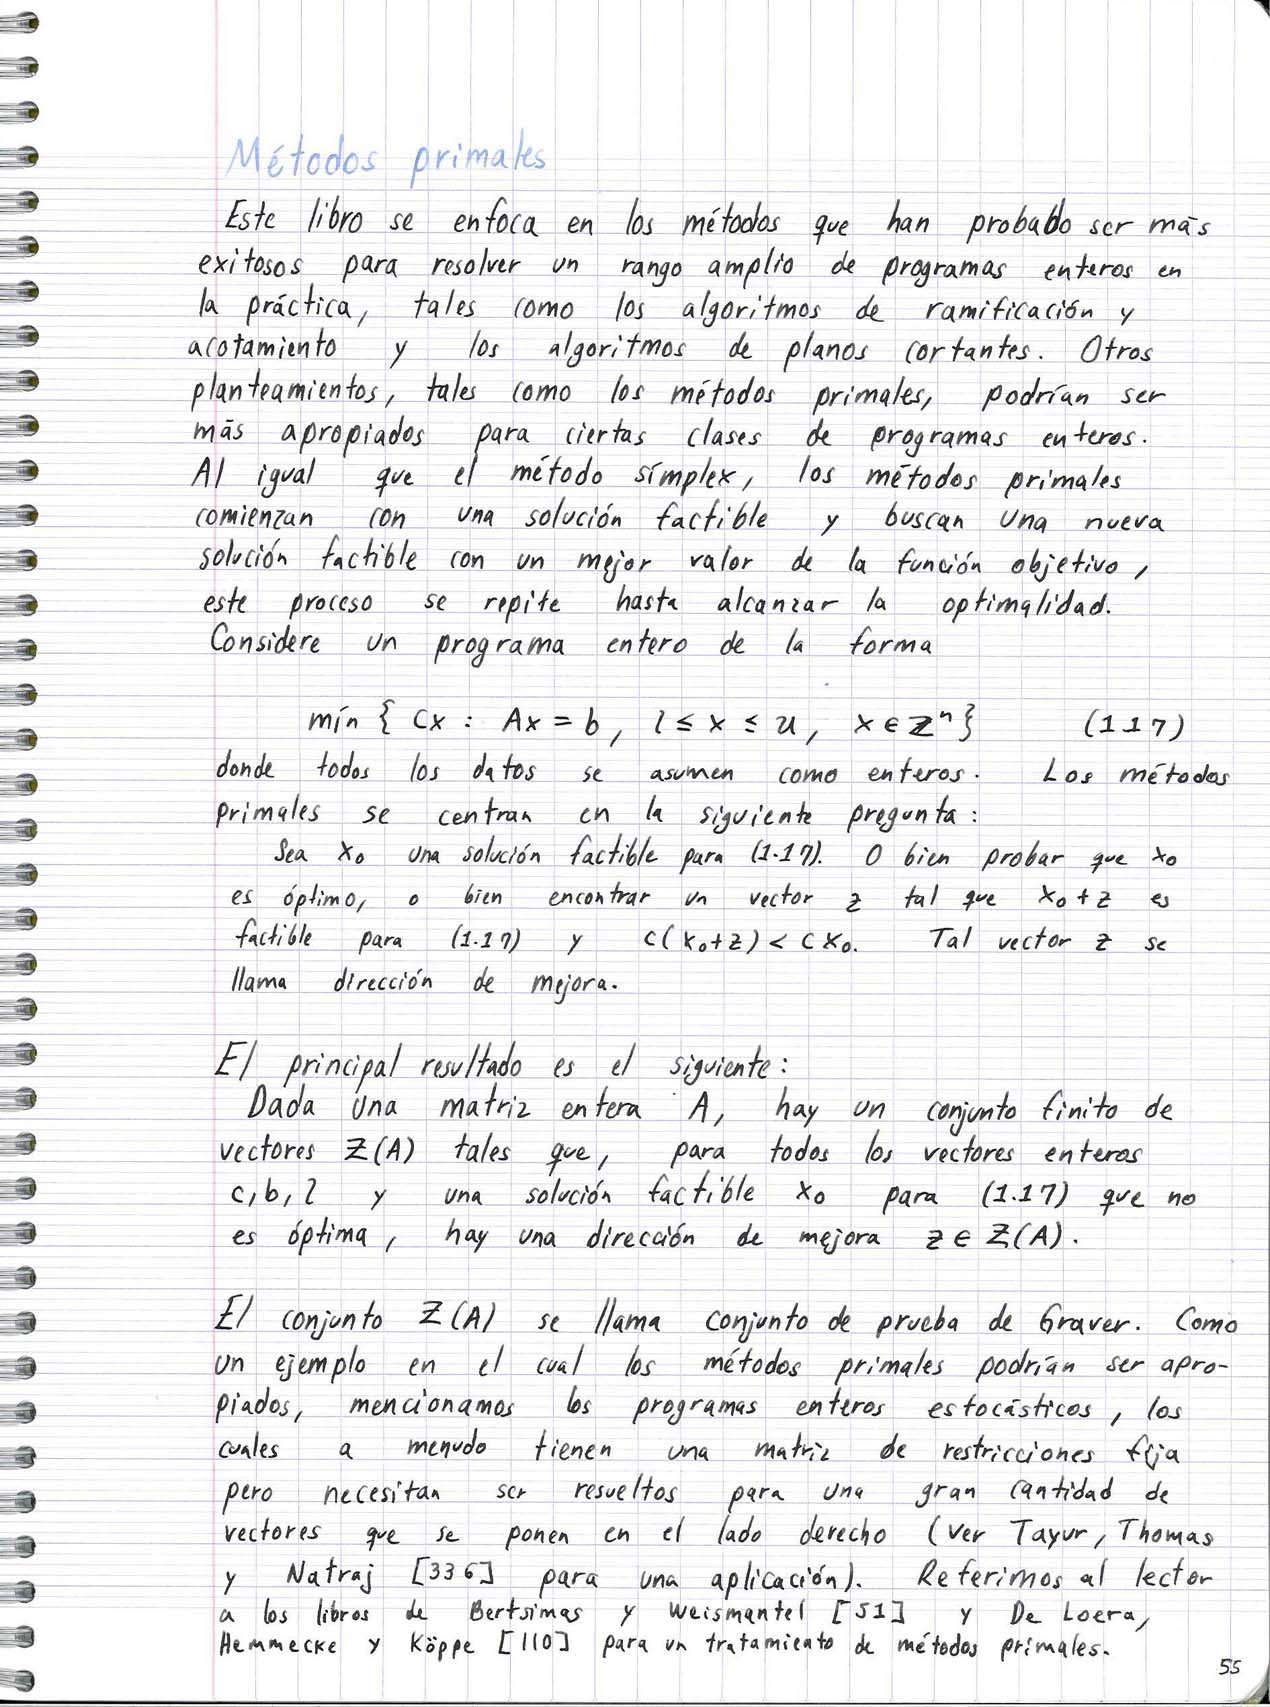 Métodos primales
Este libro se enfoca en los métodos que han probado ser más
exitosos para resolver un rango amplio de programas enteros en
la práctica, tales como los algoritmos de ramificación y
acotamiento y los algoritmos de planos cortantes. Otros
planteamientos, tales como los métodos primales, podrían ser
más apropiados para ciertas clases de programas enteros.
Al igual que el método símplex, los métodos primales
comienzan con una solución factible y buscan una nueva
solución factible con un mejor valor de la función objetivo,
este proceso se repite hasta alcanzar la optimalidad.
Considere un programa entero de la forma
mín { cx : Ax = b, l ≤ x ≤ u, x ∈ ℤⁿ} (1.17)
donde todos los datos se asumen como enteros. Los métodos
primales se centran en la siguiente pregunta:
Sea x₀ una solución factible para (1.17). O bien probar que x₀
es óptimo, o bien encontrar un vector z tal que x₀ + z es
factible para (1.17) y c(x₀+z) < cx₀. Tal vector z se
llama dirección de mejora.
El principal resultado es el siguiente:
Dada una matriz entera A, hay un conjunto finito de
vectores Z(A) tales que, para todos los vectores enteros
c, b, l y una solución factible x₀ para (1.17) que no
es óptima, hay una dirección de mejora z ∈ Z(A).
El conjunto Z(A) se llama conjunto de prueba de Graver. Como
un ejemplo en el cual los métodos primales podrían ser apro-
piados, mencionamos los programas enteros estocásticos, los
cuales a menudo tienen una matriz de restricciones fija
pero necesitan ser resueltos para una gran cantidad de
vectores que se ponen en el lado derecho (ver Tayur, Thomas
y Natraj [336] para una aplicación). Referimos al lector
a los libros de Bertsimas y Weismantel [51] y De Loera,
Hemmecke y Köppe [110] para un tratamiento de métodos primales.
55